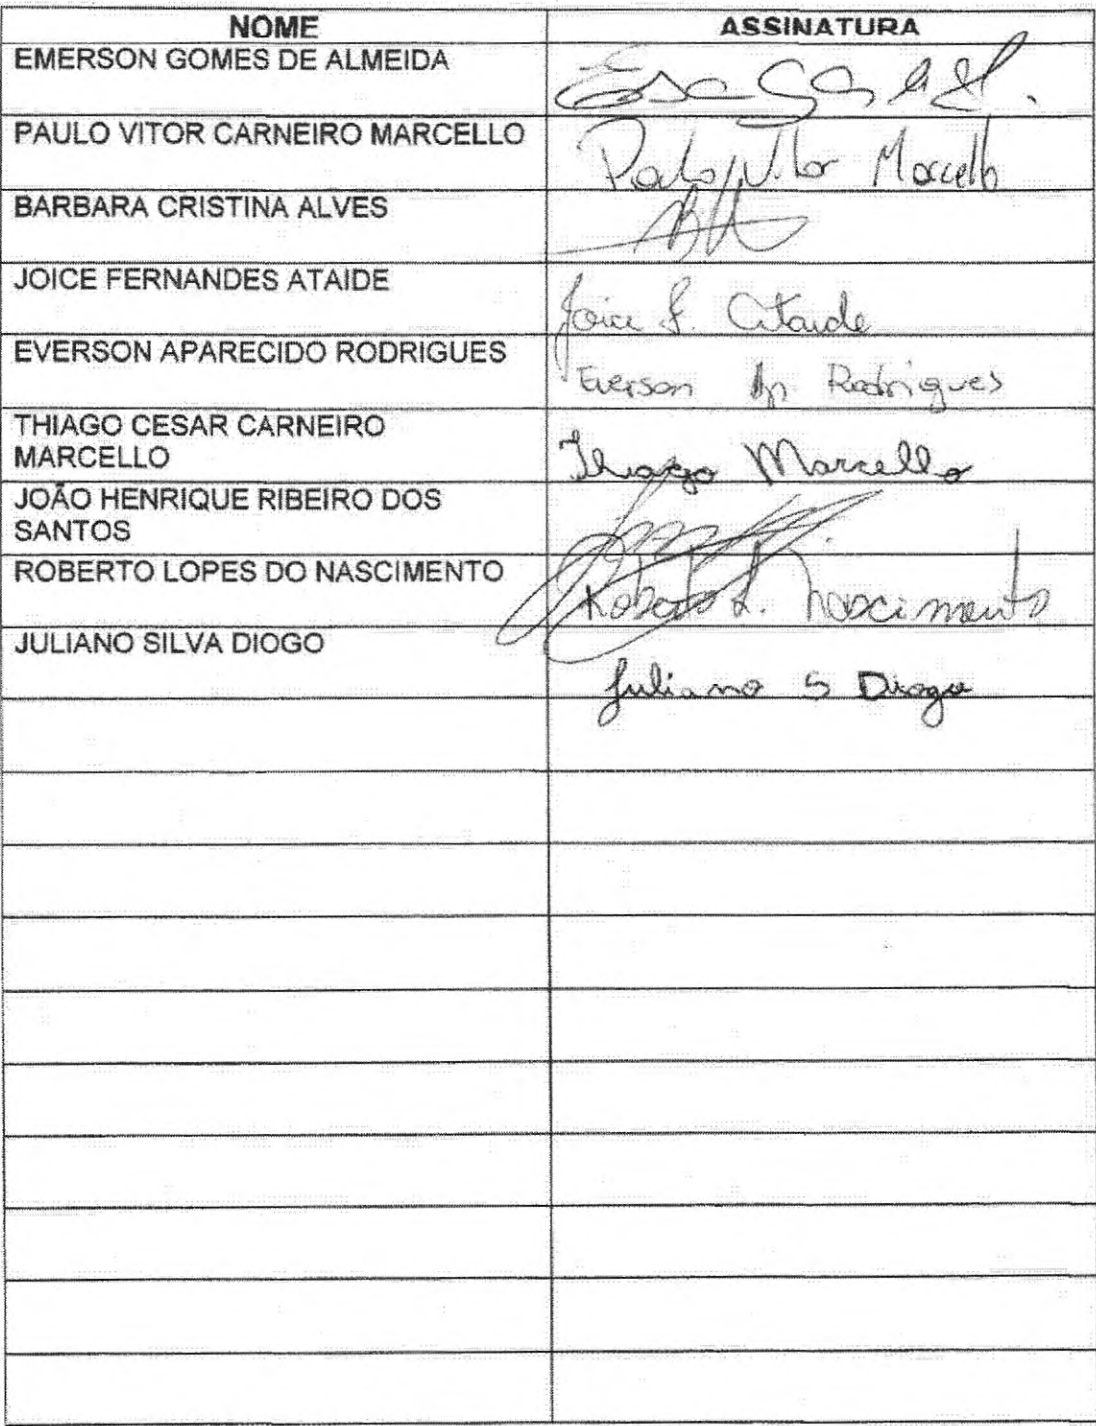 NOME ASSINATURA
EMERSON GOMES DE ALMEIDA
PAULO VITOR CARNEIRO MARCELLO Paulo Vitor Marcello
BARBARA CRISTINA ALVES
JOICE FERNANDES ATAIDE Joice F. Ataide
EVERSON APARECIDO RODRIGUES Everson Ap Rodrigues
THIAGO CESAR CARNEIRO
MARCELLO Thiago Marcello
JOÃO HENRIQUE RIBEIRO DOS
SANTOS
ROBERTO LOPES DO NASCIMENTO Roberto L. Nascimento
JULIANO SILVA DIOGO Juliano S Diogo